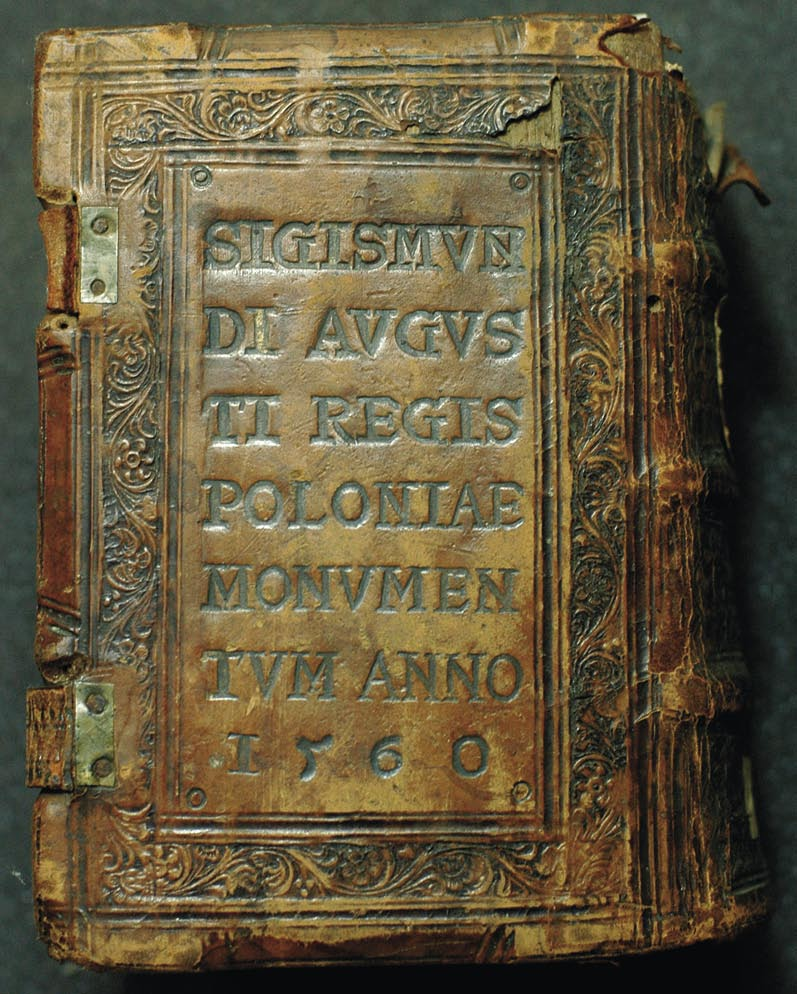 SIGISMVN
DI AVGVS
TI REGIS
POLONIAE
MONVMEN
TVM ANNO
1560